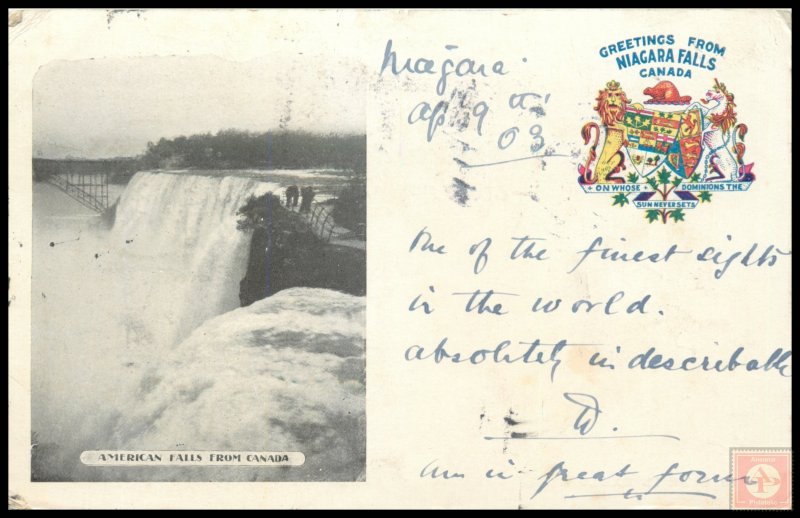 GREETINGS FROM
NIAGARA FALLS
CANADA
Niagara
ap 9th
03
+ ON WHOSE DOMINIONS THE
SUN NEVER SETS
One of the finest sights
in the world.
absolutely indescribable
W.
Am in great form
AMERICAN FALLS FROM CANADA